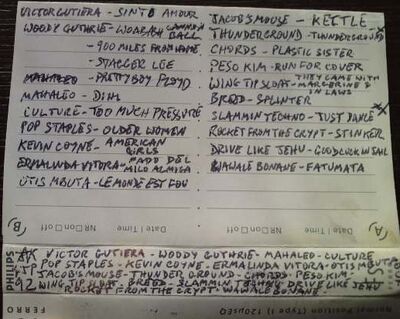 VICTOR GUTIERA - SINTO AMOUR
WOODY GUTHRIE - WOBASH CANNON
BALL
- 900 MILES FROM HOME
- STAGGER LEE
MAHALEO - PRETTY BOY FLOYD
MAHALEO - DINI
CULTURE - TOO MUCH PRESSURE
POP STAPLES - OLDER WOMEN
KEVIN COYNE - AMERICAN
GIRLS
ERMALINDA VITORA - FADO DEL
MILO ALMIGA
OTIS MBUTA - LE MONDE EST FOU
JACOB'S MOUSE - KETTLE
THUNDERGROUND - THUNDERGROUND
CHORDS - PLASTIC SISTER
PESO KIM - RUN FOR COVER
WING TIP SLOAT - THEY CAME WITH
MARGERINE &
IN LAWS
BREED - SPLINTER
SLAMMIN TECHNO - JUST DANCE
ROCKET FROM THE CRYPT - STINKER
DRIVE LIKE JEHU - GOOD LUCK IN JAIL
WAWALE BONANE - FATUMATA
A Date | Time NR On Off
B Date | Time NR On Off
PHILIPS
VICTOR GUTIERA - WOODY GUTHRIE - MAHALEO - CULTURE
POP STAPLES - KEVIN COYNE - ERMALINDA VITORA - OTIS MBUTA
JACOB'S MOUSE - THUNDERGROUND - CHORDS - PESO KIM
92 WING TIP SLOAT - BREED - SLAMMIN TECHNO DRIVE LIKE JEHU
ROCKET FROM THE CRYPT - WAWALE BONANE
FERRO
Normal Position (Type I) 120µs EQ
FERRO